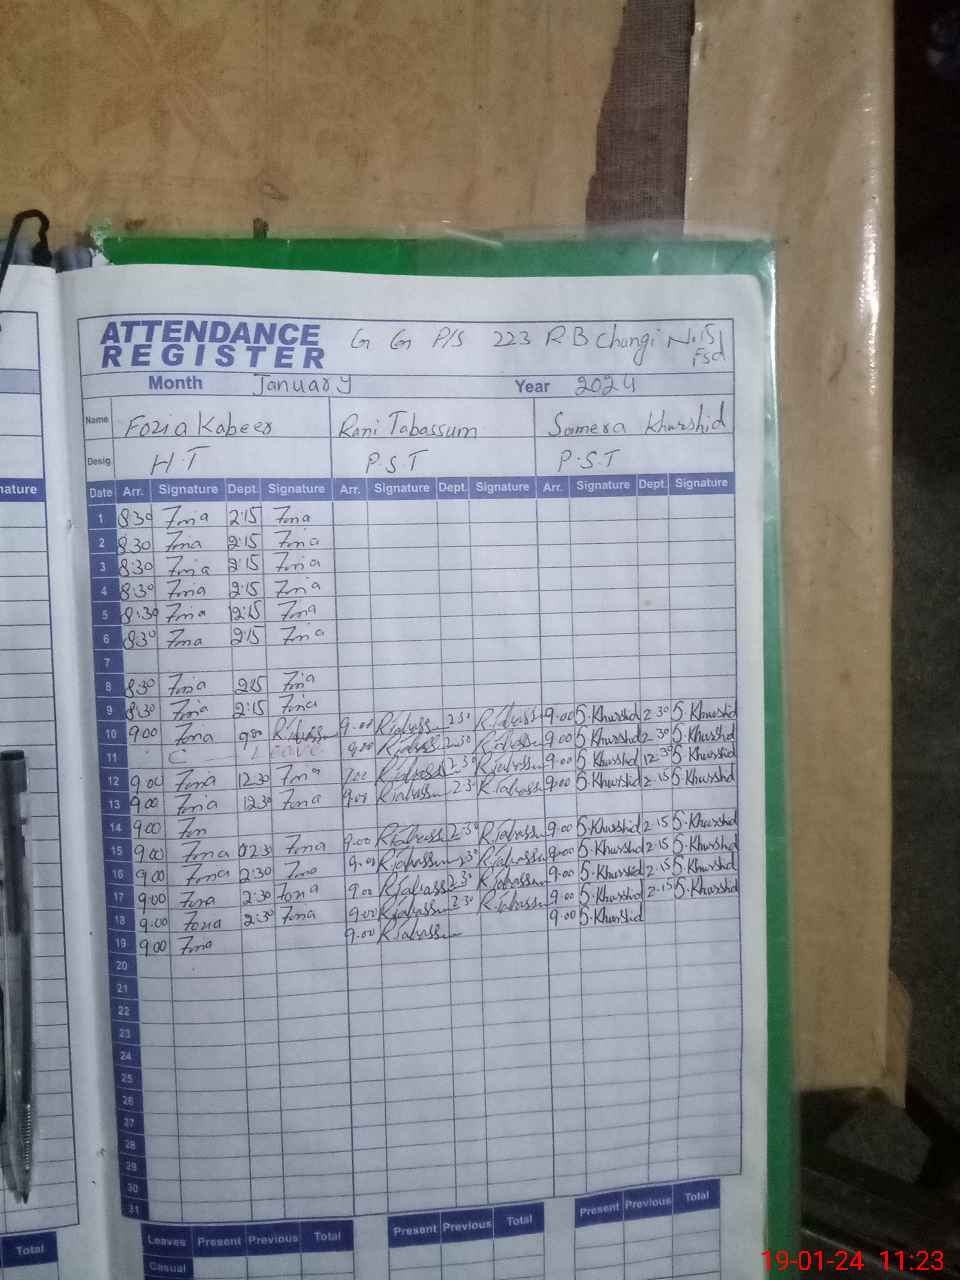 ATTENDANCE REGISTER G G P/S 223 R B Changi No.15 Fsd
Month January Year 2024
Name Fozia Kabeer Rani Tabassum Samera Khurshid
Desig. H.T P.S.T P.S.T
nature Date Arr. Signature Dept. Signature Arr. Signature Dept. Signature Arr. Signature Dept. Signature
1 8:30 Fozia 2:15 Fozia
2 8:30 Fozia 2:15 Fozia
3 8:30 Fozia 2:15 Fozia
4 8:30 Fozia 2:15 Fozia
5 8:30 Fozia 2:15 Fozia
6 8:30 Fozia 2:15 Fozia
7
8 8:30 Fozia 2:15 Fozia
9 8:30 Fozia 2:15 Fozia
10 9:00 Fozia 9:00 R.Tabassum 9.00 R.Tabassum 2:30 R.Tabassum 9.00 S.Khurshid 2:30 S.Khurshid
11 C Leave 9:00 R.Tabassum 2:30 R.Tabassum 9.00 S.Khurshid 2:30 S.Khurshid
12 9:00 Fozia 12:30 Fozia 9:00 R.Tabassum R.Tabassum 9.00 S.Khurshid 12:30 S.Khurshid
13 9:00 Fozia 12:30 Fozia 9:00 R.Tabassum 2:30 R.Tabassum 9:00 S.Khurshid 2:15 S.Khurshid
14 9:00
15 9:00 Fozia 02:30 Fozia 9:00 R.Tabassum 2:30 R.Tabassum 9.00 S.Khurshid 2:15 S.Khurshid
16 9:00 Fozia 2:30 Fozia 9:00 R.Tabassum 2:30 R.Tabassum 9:00 S.Khurshid 2:15 S.Khurshid
17 9:00 Fozia 2:30 Fozia 9:00 R.Tabassum 2:30 R.Tabassum 9:00 S.Khurshid 2:15 S.Khurshid
18 9:00 Fozia 2:30 Fozia 9:00 R.Tabassum 2:30 R.Tabassum 9:00 S.Khurshid 2:15 S.Khurshid
19 9:00 Fozia 9.00 R.Tabassum 9.00 S.Khurshid
20
21
22
23
24
25
26
27
28
29
30
31
Total Leaves Present Previous Total Present Previous Total Present Previous Total
Casual
19-01-24 11:23